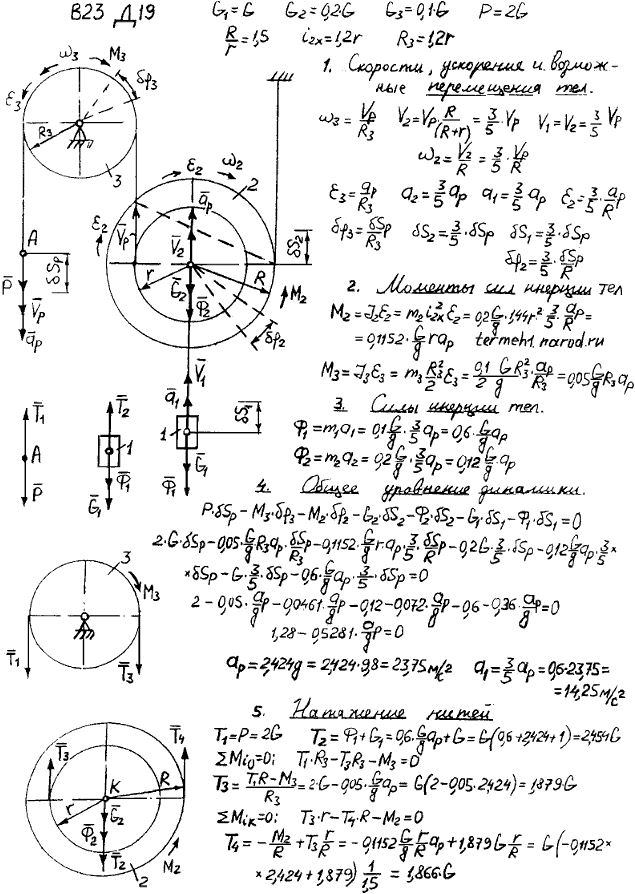 В23 Д19
G₁=G G₂=0,2G G₃=0,1G P=2G
R/r=1,5 i₂ₓ=1,2r R₃=1,2r
1. Скорости, ускорения и возмож-
ные перемещения тел.
ω₃=Vp/R₃ V₂=Vp·R/(R+r)=3/5·Vp V₁=V₂=3/5 Vp
ω₂=V₂/R=3/5·Vp/R
ε₃=ap/R₃ a₂=3/5 ap a₁=3/5 ap ε₂=3/5·ap/R
δφ₃=δSp/R₃ δS₂=3/5·δSp δS₁=3/5·δSp
δφ₂=3/5·δSp/R
2. Моменты сил инерции тел
M₂=J₂ε₂=m₂i₂ₓ²ε₂=0,2G/g·1,44r²·3/5·ap/R=
=0,1152·G/g r ap termeh1.narod.ru
M₃=J₃ε₃=m₃R₃²/2 ε₃=0,1/2 GR₃²/g·ap/R₃=0,05G/g R₃ap
3. Силы инерции тел.
Φ₁=m₁a₁=0,1G/g·3/5ap=0,6·G/g ap
Φ₂=m₂a₂=0,2G/g·3/5ap=0,12G/g·ap
4. Общее уровнение динамики.
P·δSp-M₃·δφ₃-M₂·δφ₂-G₂·δS₂-Φ₂·δS₂-G₁·δS₁-Φ₁·δS₁=0
2·G·δSp-0,05·G/g R₃ap·δSp/R₃-0,1152·G/g r·ap·3/5·δSp/R-0,2G·3/5·δSp-0,12G/g ap·3/5×
×δSp-G·3/5·δSp-0,6G/g ap·3/5·δSp=0
2-0,05·ap/g-0,0461·ap/g-0,12-0,072·ap/g-0,6-0,36·ap/g=0
1,28-0,5281·ap/g=0
ap=2,424g=2,424·9,8=23,75м/с² a₁=3/5 ap=0,6·23,75=
=14,25м/с²
5. Натяжение нитей
T₁=P=2G T₂=Φ₁+G₁=0,6·G/g ap+G=G(0,6·2,424+1)=2,454G
ΣMi₀=0; T₁·R₃-T₃R₃-M₃=0
T₃=(T₁R-M₃)/R₃=2·G-0,05·G/g ap=G(2-0,05·2424)=1,879G
ΣMiₖ=0: T₃·r-T₄·R-M₂=0
T₄=-M₂/R+T₃r/R=-0,1152G/g r/R ap+1,879G r/R=G(-0,1152×
×2,424+1,879)1/1,5=1,866·G
ω₃ M₃
ε₃ δφ₃
R₃
3
A
P̄ δSp
V̄p
āp
ε₂ ω₂
2
āp
ε₂
V̄p V̄₂ δS₂
r R
Ḡ₂ M₂
Φ̄₂
δφ₂
V̄₁
ā₁
1 δS₁
Ḡ₁
Φ̄₁
T̄₁ T̄₂
A 1
P̄ Φ̄₁
Ḡ₁
3
M₃
T̄₁ T̄₃
T̄₄
T̄₃
K R
r Ḡ₂
Φ̄₂
T̄₂ M₂
2